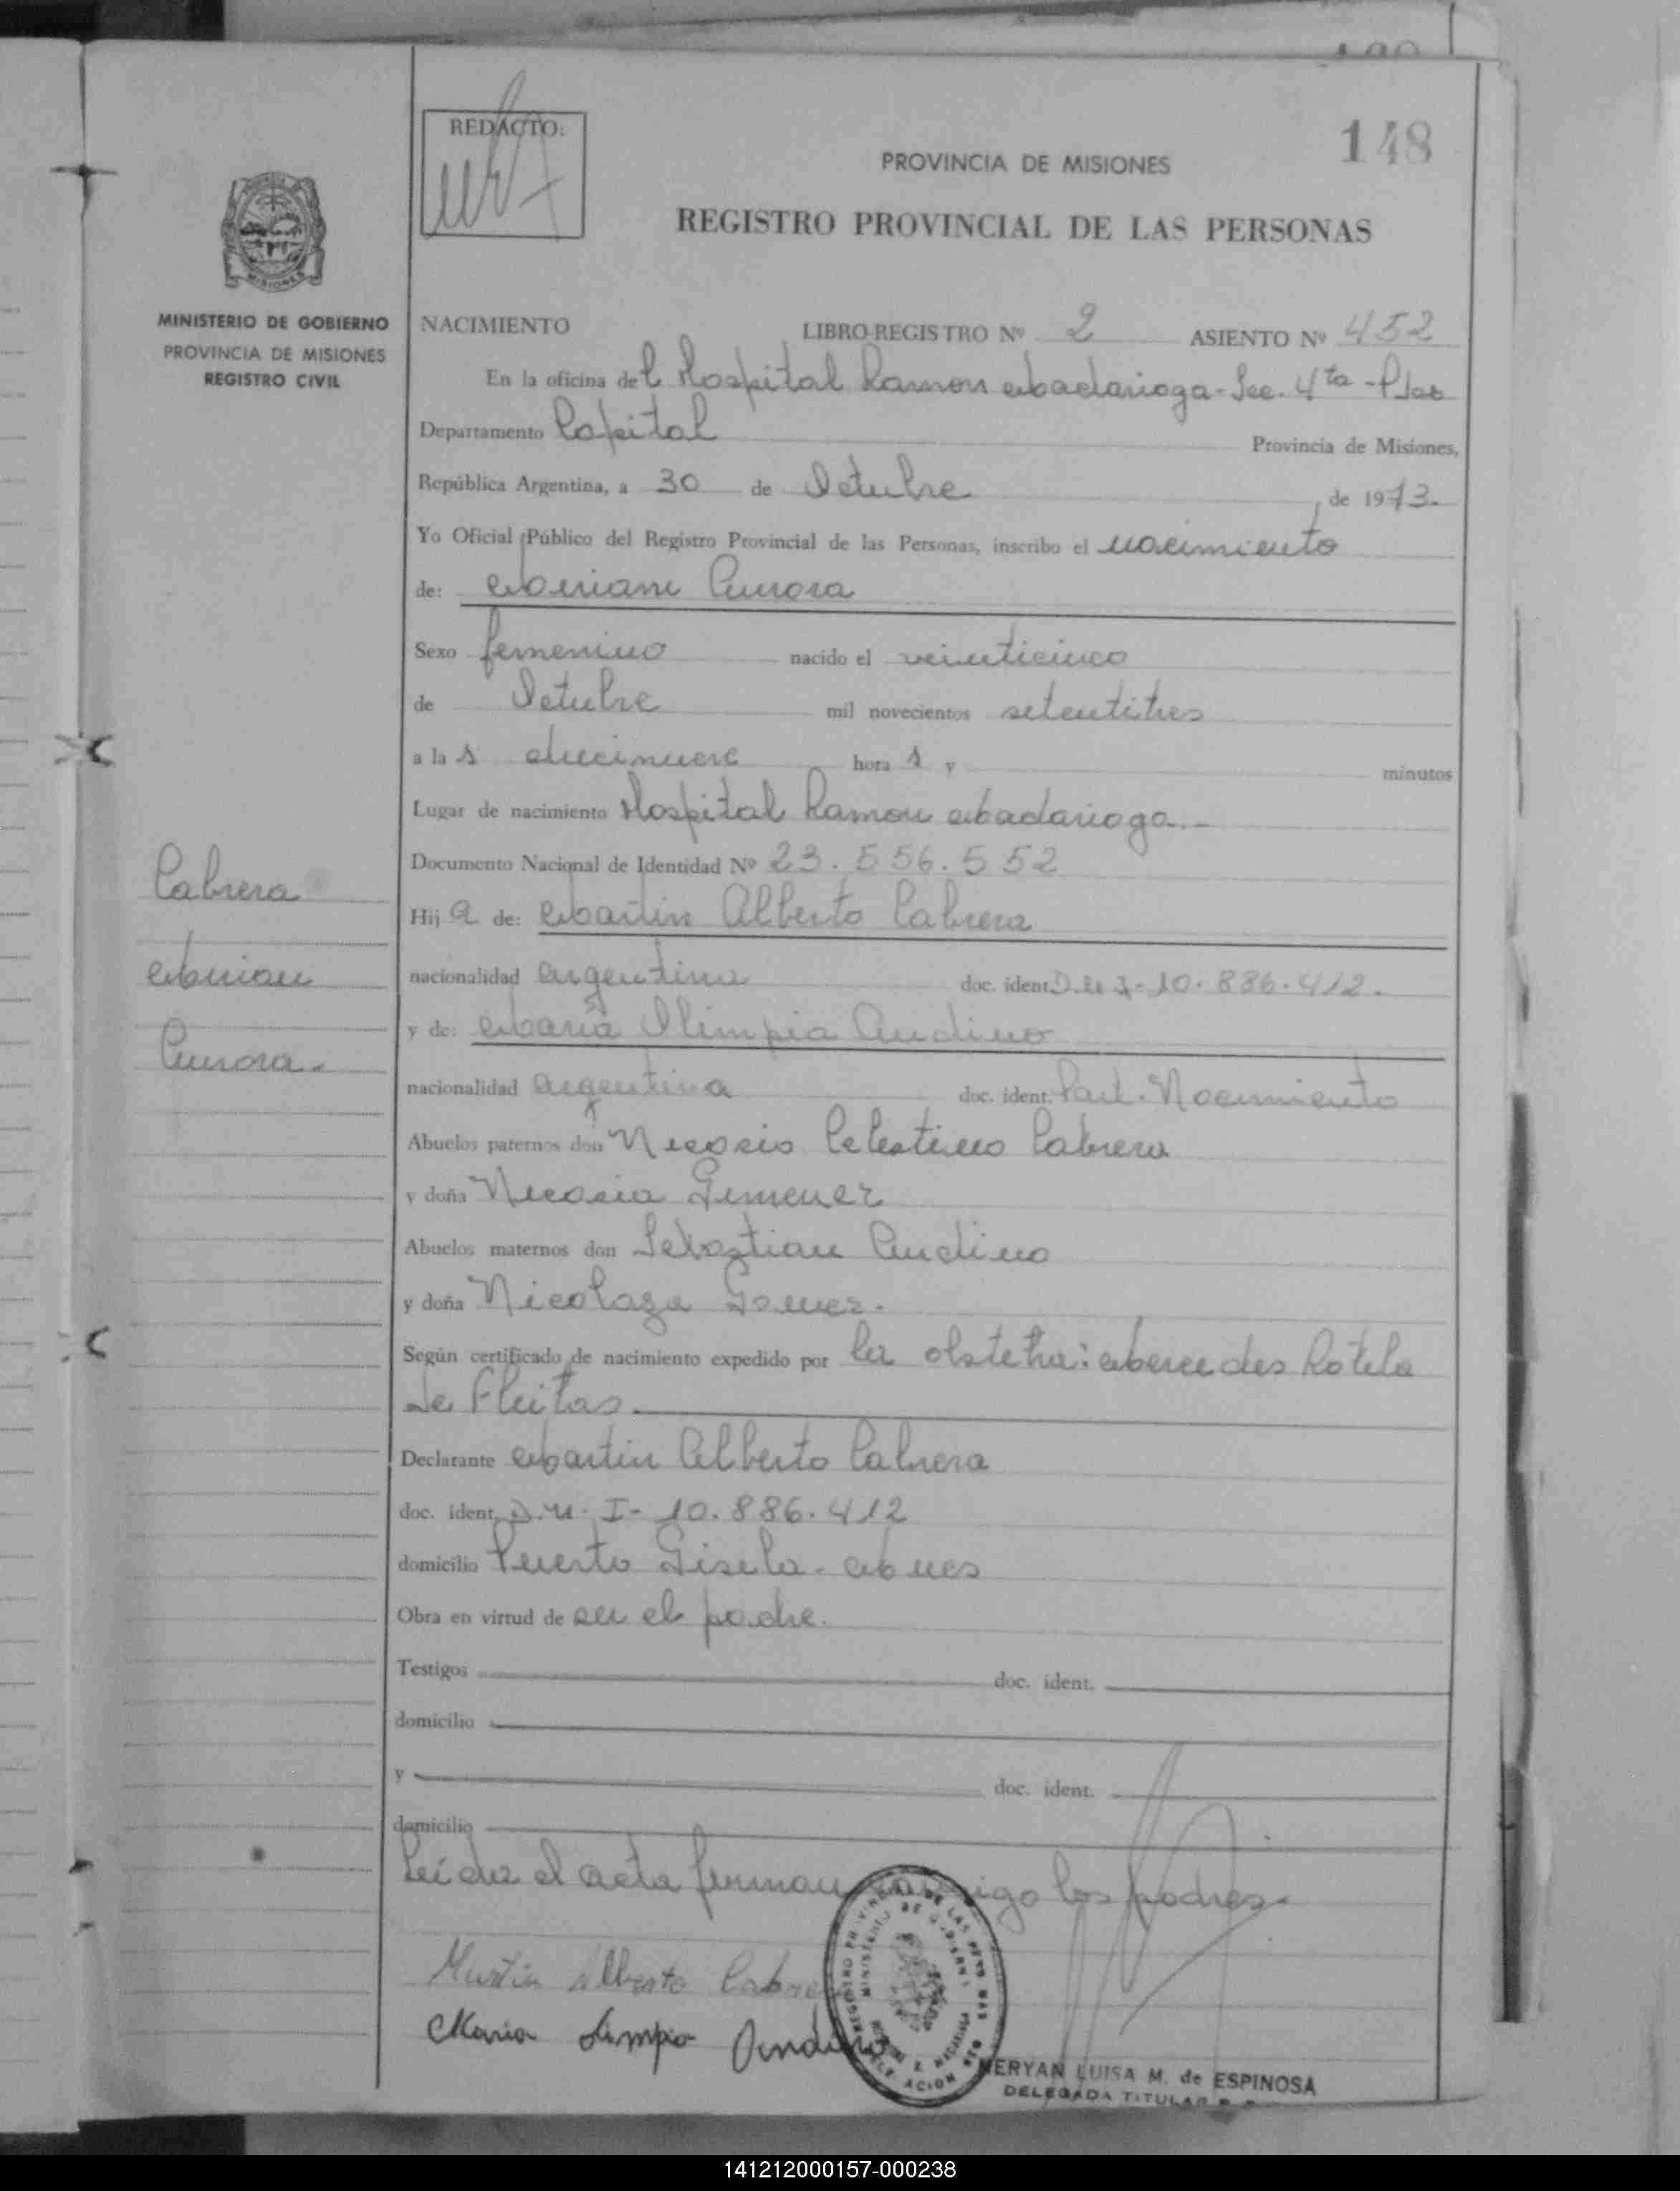 148
REDACTO:
PROVINCIA DE MISIONES
REGISTRO PROVINCIAL DE LAS PERSONAS
MINISTERIO DE GOBIERNO
PROVINCIA DE MISIONES
REGISTRO CIVIL
NACIMIENTO LIBRO-REGISTRO Nº 2 ASIENTO Nº 452
En la oficina del Hospital Ramon Madariaga - Sec. 4ta - Pdas
Departamento Capital Provincia de Misiones,
República Argentina, a 30 de Octubre de 1973.
Yo Oficial Público del Registro Provincial de las Personas, inscribo el nacimiento
de: Miriam Aurora
Sexo femenino nacido el veinticinco
de Octubre mil novecientos setentitres
a las diecinueve horas y minutos
Lugar de nacimiento Hospital Ramon Madariaga.-
Documento Nacional de Identidad Nº 23.556.552
Cabrera
Hija de: Martin Alberto Cabrera
Miriam
nacionalidad argentina doc. ident. D.N.I- 10.886.412.
y de: Maria Olimpia Andino
Aurora.-
nacionalidad argentina doc. ident. Part. Nacimiento
Abuelos paternos don Nicasio Celestino Cabrera
y doña Nicasia Gimenez
Abuelos maternos don Sebastian Andino
y doña Nicolaza Gomez.
Según certificado de nacimiento expedido por la obstetra: Mercedes Rotela
de Fleitas.
Declarante Martin Alberto Cabrera
doc. ident. D.N.I- 10.886.412
domicilio Puerto Gisela - Mnes
Obra en virtud de ser el padre.
Testigos doc. ident.
domicilio
y doc. ident.
domicilio
Leida el acta firman conmigo los padres.
Martin Alberto Cabrera
Maria Limpia Andino
MERYAN LUISA M. de ESPINOSA
DELEGADA TITULAR
141212000157-000238